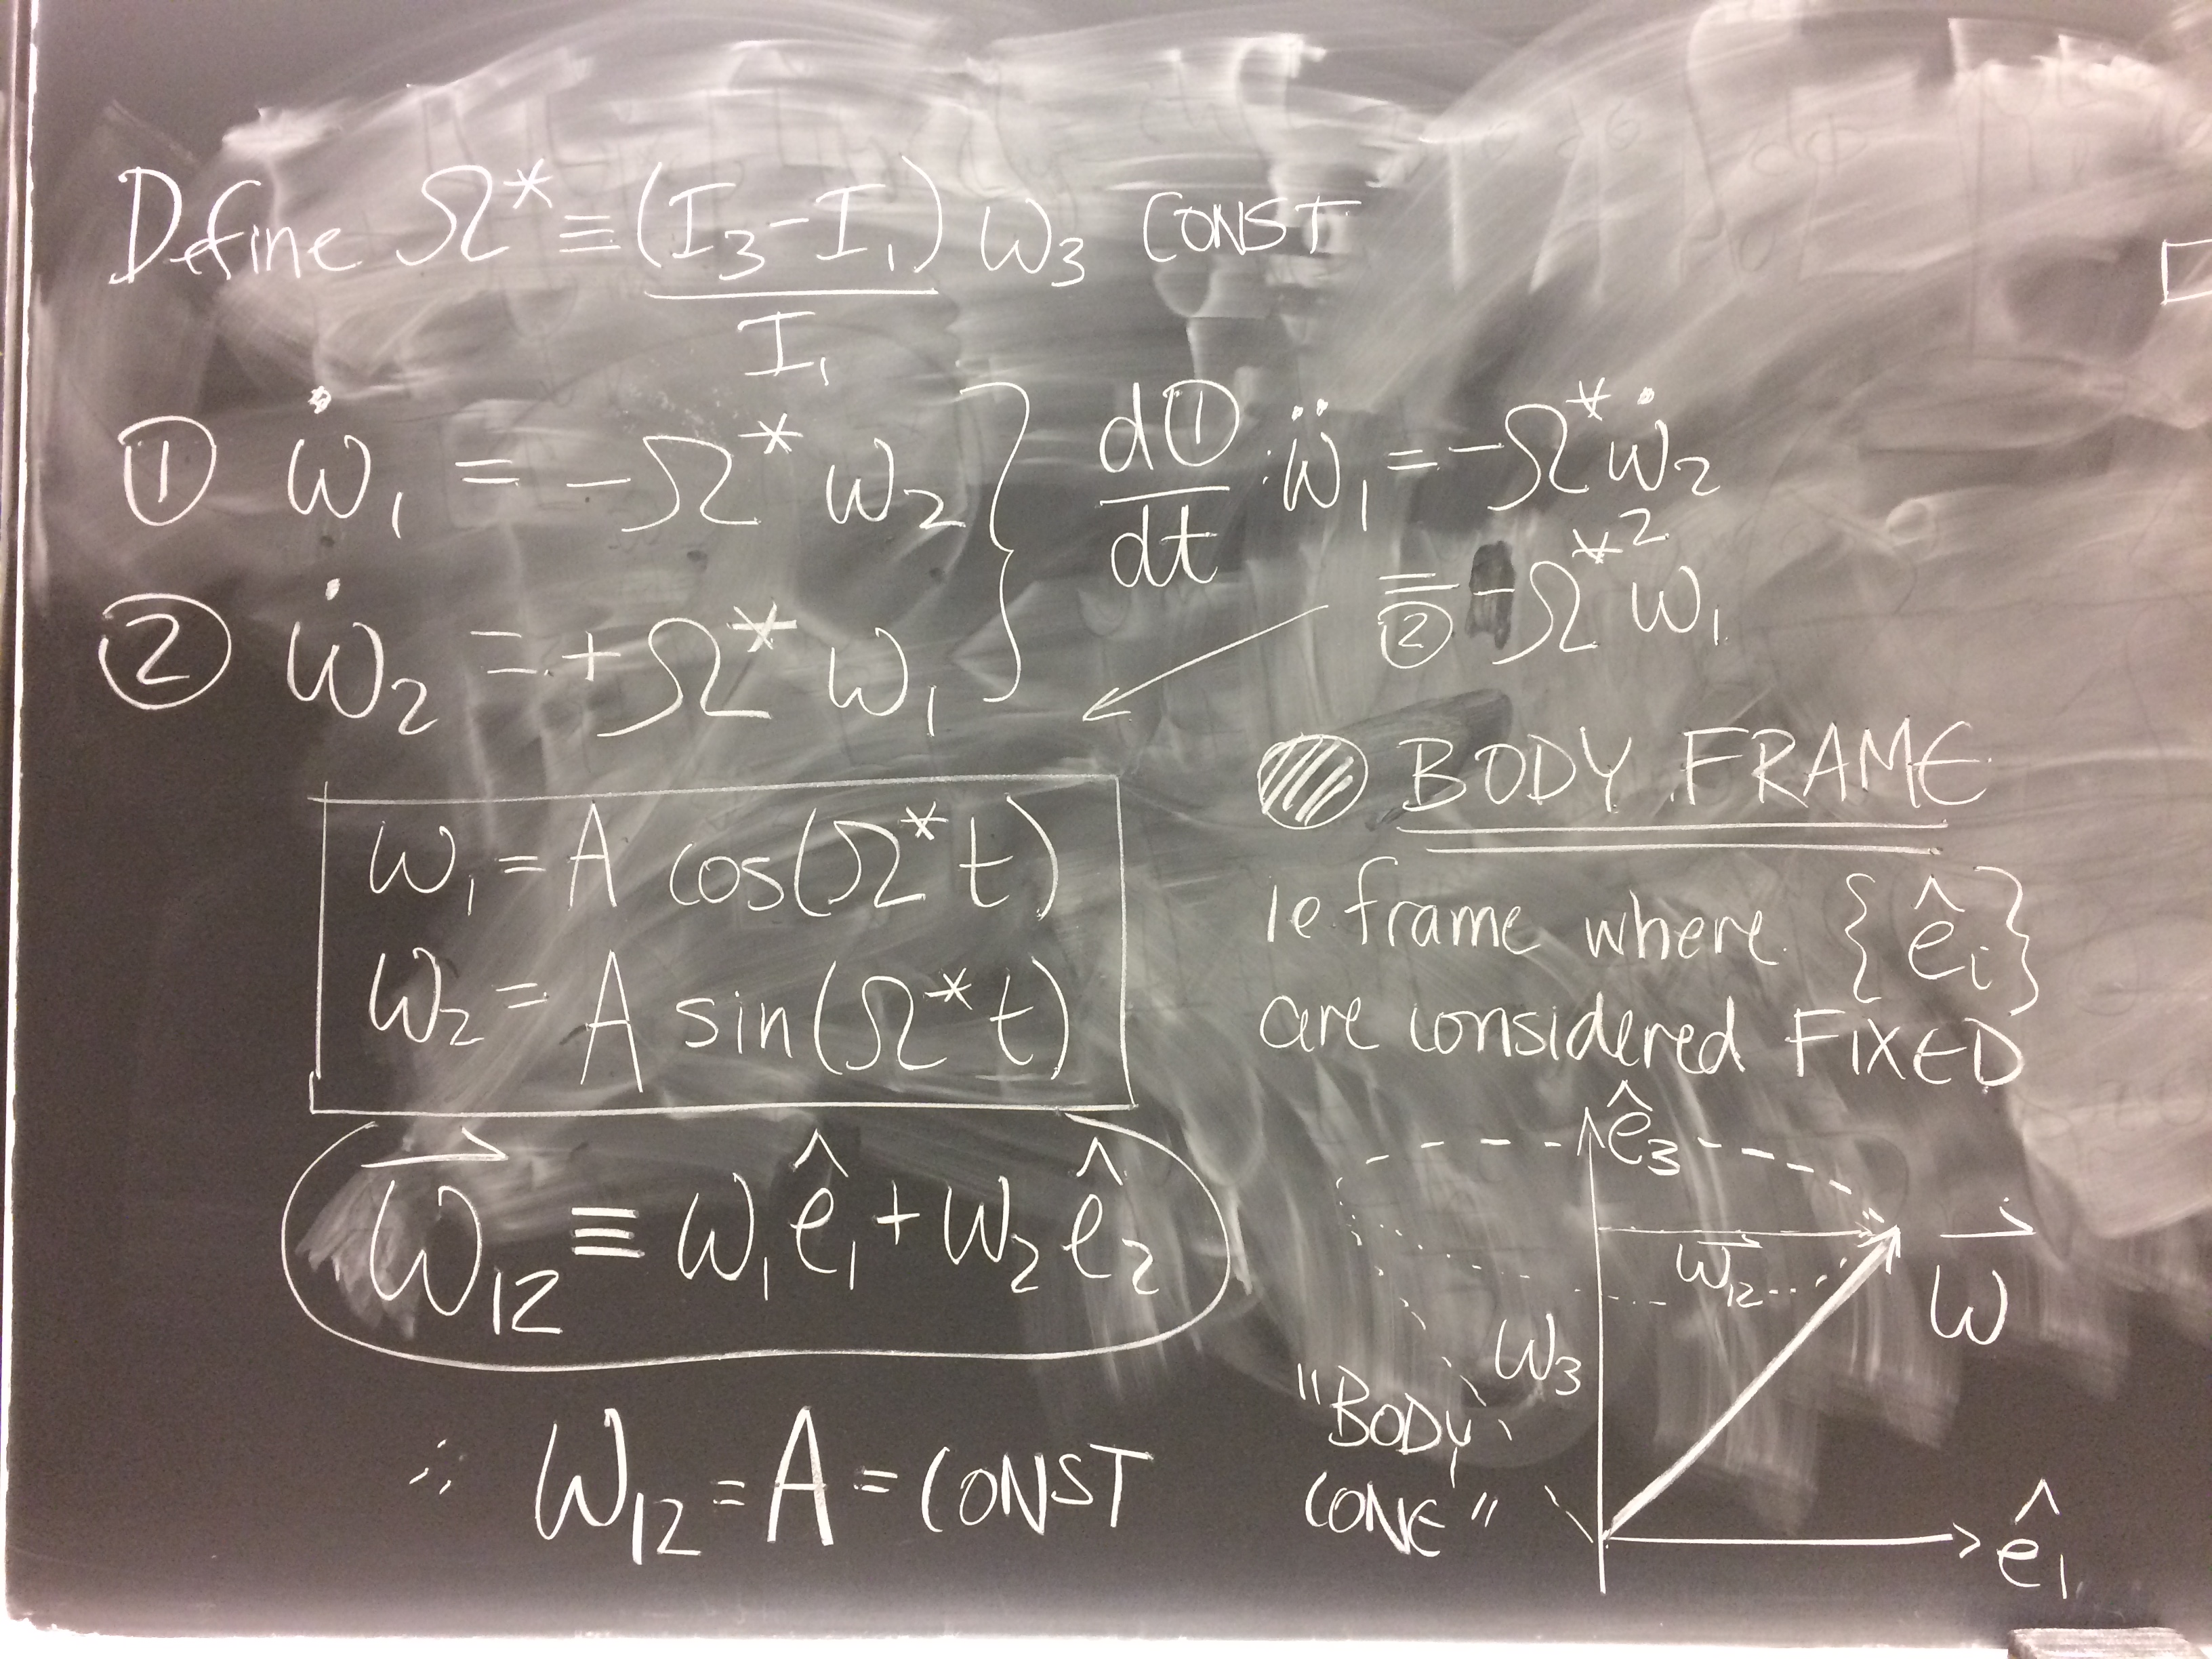 Define Ω* ≡ (I₃-I₁)/I₁ ω₃ CONST
① ω̇₁ = -Ω* ω₂
② ω̇₂ = +Ω* ω₁
d①/dt : ω̈₁ = -Ω* ω̇₂
=② -Ω*² ω₁
ω₁ = A cos(Ω* t)
ω₂ = A sin(Ω* t)
ω⃗₁₂ ≡ ω₁ ê₁ + ω₂ ê₂
∴ ω₁₂ = A = CONST
BODY FRAME
ie frame where {êᵢ}
are considered FIXED
ê₃
ω⃗₁₂
ω⃗
ω₃
"BODY
CONE"
ê₁